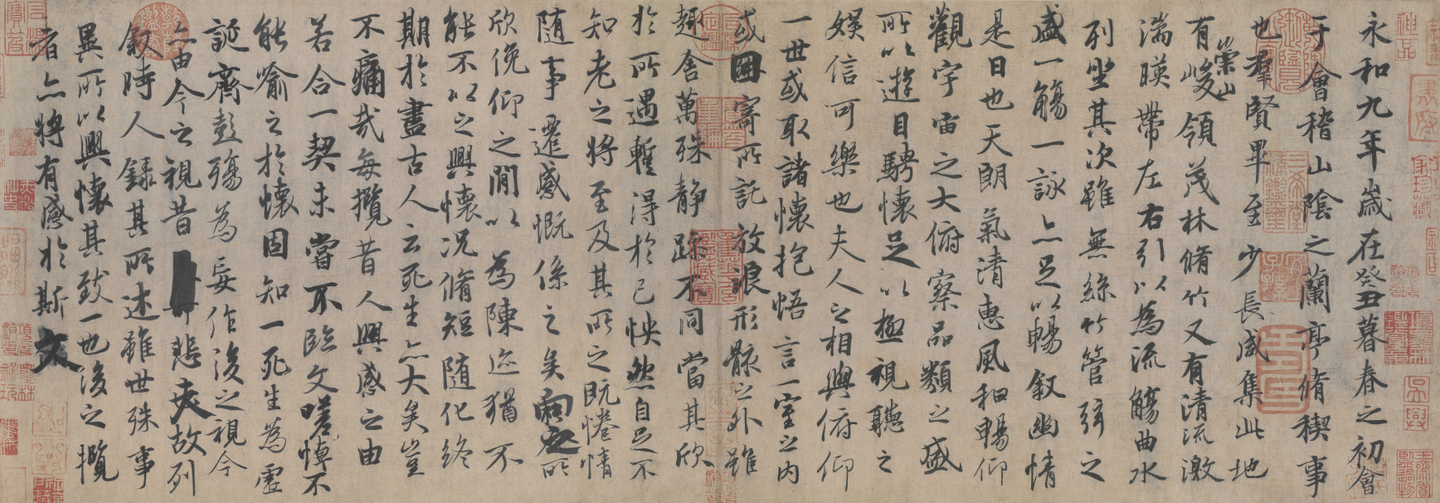 永和九年歲在癸丑暮春之初會
于會稽山陰之蘭亭脩稧事
也群賢畢至少長咸集此地
有崇山峻領茂林脩竹又有清流激
湍暎帶左右引以為流觴曲水
列坐其次雖無絲竹管弦之
盛一觴一詠亦足以暢敘幽情
是日也天朗氣清惠風和暢仰
觀宇宙之大俯察品類之盛
所以遊目騁懷足以極視聽之
娛信可樂也夫人之相與俯仰
一世或取諸懷抱悟言一室之內
或因寄所託放浪形骸之外雖
趣舍萬殊靜躁不同當其欣
於所遇暫得於己怏然自足不
知老之將至及其所之既惓情
隨事遷感慨係之矣向之所
欣俛仰之閒以為陳迹猶不
能不以之興懷況脩短隨化終
期於盡古人云死生亦大矣豈
不痛哉每攬昔人興感之由
若合一契未嘗不臨文嗟悼不
能喻之於懷固知一死生為虛
誕齊彭殤為妄作後之視今
亦由今之視昔悲夫故列
敘時人錄其所述雖世殊事
異所以興懷其致一也後之攬
者亦將有感於斯文
神品